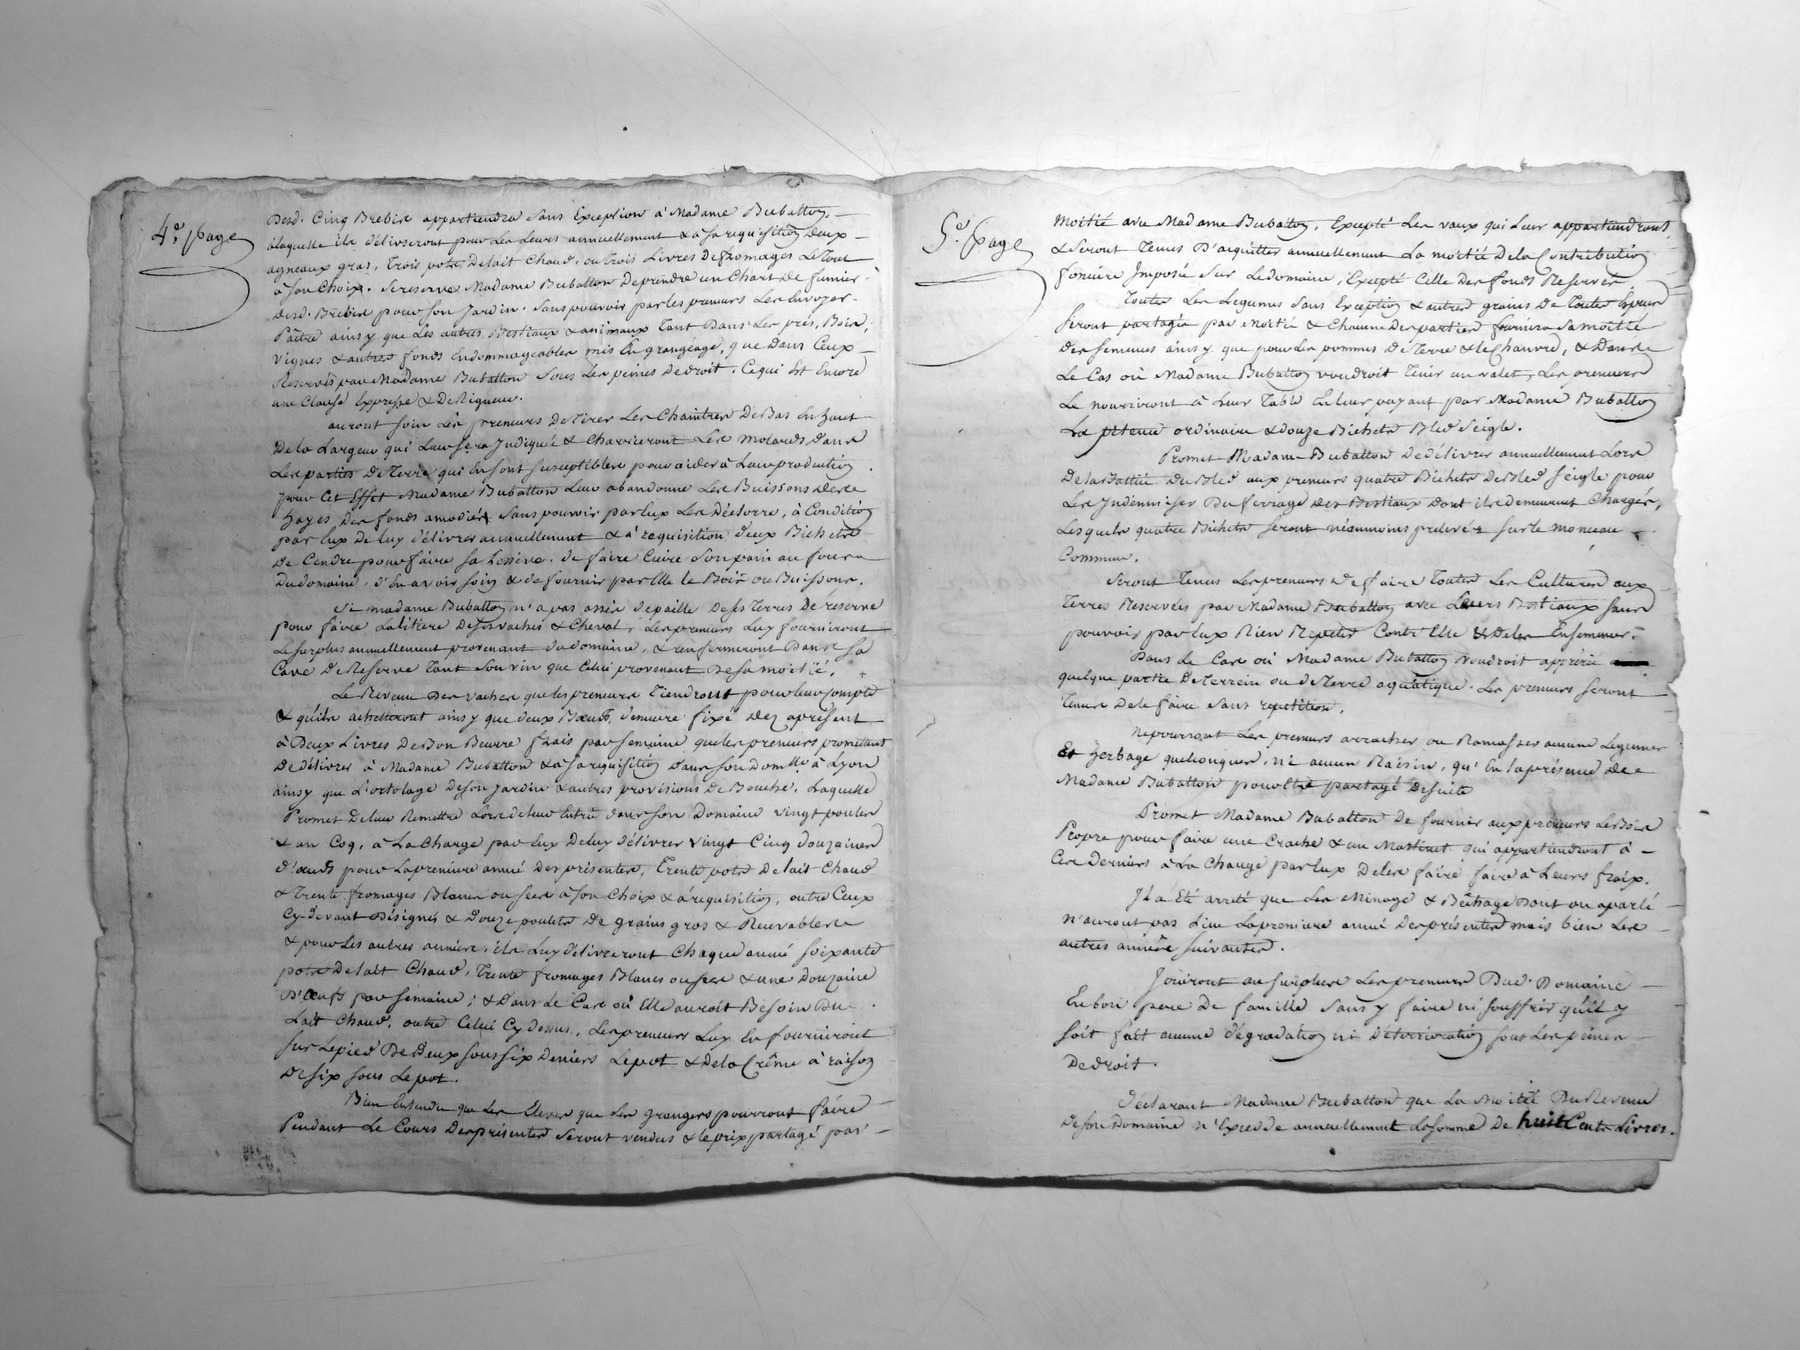 4e. page
Desd. Cinq Brebis appartiendra sans Exception à Madame Bubatton,
à laquelle ils délivreront pour les leurs annuellement & a sa requisition deux
agneaux gras, trois pots de lait Chaud, ou trois Livres de fromages le tout
à son Choix. Se reserve Madame Bubatton de prendre un Chart de fumier
desd. Brebis pour son Jardin. Sans pouvoir par les preneurs les Envoyer
Paître ainsy que les autres Bestiaux & animaux tant dans les prés, Bois,
Vignes & autres fonds Endommageables mis En grangéage, que dans Ceux
Reservés par Madame Bubatton sous les peines de droit. Ce qui Est Encore
une Clause Expresse & de Rigueur.
auront soin les preneurs de tirer les Chaintres de Bas En haut
De la Largeur qui Leur sera Indiquée & Charrieront Les molards dans
Les parties de Terre qui En sont susceptibles pour aider à Leur production
pour Cet Effet Madame Bubatton Leur abandonne Les Buissons des
hayes des fonds amodiés sans pouvoir par Eux Les Déclorre, à Condition
par Eux de luy délivrer annuellement & à requisition deux Bichets
de Cendre pour faire sa Lessive. de faire Cuire son pain au four
Du domaine, d'En avoir soin & de fournir par Elle le Bois ou Buissons.
Si madame Bubatton n'a pas assés de paille de ses Terres de réserve
pour faire La litiere de ses vaches & Cheval, Les preneurs Luy fourniront
Le surplus annuellement provenant du domaine, & renfermeront dans sa
Cave de Reserve tant son vin que Celui provenant de sa moitié.
Le Revenu des vaches que les preneurs tiendront pour leur Compte
& qu'ils achetteront ainsy que deux Bœufs, demeure fixé dez aprésent
à Deux Livres de Bon Beurre frais par semaine que les preneurs promettent
de délivrer à Madame Bubatton & a sa requisition dans son Domlle à Lyon
ainsy que L'ortolage de son Jardin & autres provisions de Bouche, Laquelle
Promet de leur Remettre Lors de leur Entrée dans son Domaine vingt poules
& un Coq, à La Charge par Eux de luy délivrer vingt Cinq douzaines
d'œufs pour La premiere année des présentes, Trente pots de lait Chaud
& Trente fromages Blancs ou secs à son Choix & à requisition, outre Ceux
Cy-devant Désignés & Douze poulets de grains gros & Recevables
& pour Les autres années, ils Luy délivreront Chaque année soixante
pots de lait Chaud, Trente fromages Blancs ou secs & une Douzaine
D'œufs par semaine; & Dans Le Cas où Elle auroit Besoin Du
Lait Chaud, outre Celui Cy dessus, Les preneurs Luy En fourniront
sur Le pied de Deux sous six Deniers Le pot & de la Crême à raison
de six sous Le pot.
Bien Entendu que Les Eleves que Les grangers pourront faire
Pendant Le Cours des présentes seront vendus & le prix partagé par
5e. page
moitié avec Madame Bubatton, Excepté Les vaux qui Leur appartiendront
& seront tenus d'acquitter annuellement La moitié de La Contribution
fonciere Imposée sur Le domaine, Excepté Celle des fonds Reservés.
Toutes Les Legumes sans Exception & autres grains de toutes Espèces
seront partagés par moitié & Chacune des parties fournira sa moitié
des semences ainsy que pour les pommes de Terre & le Chanvre, & Dans
Le Cas où Madame Bubatton voudroit tenir un valet, Les preneurs
Le nourriront à Leur Table En leur payant par Madame Bubatton
La pitence ordinaire & douze Bichets Bled seigle.
Promet Madame Bubatton de délivrer annuellement Lors
De la Battue du Bled aux preneurs quatre Bichets de Bled seigle pour
Les Indemniser Du ferrage des Bestiaux dont ils demeurent Chargés,
Lesquels quatre Bichets seront néanmoins prélevés sur le monceau
Commun.
Seront tenus Les preneurs de faire toutes Les Cultures aux
Terres Reservées par Madame Bubatton avec Leurs Bestiaux sans
pouvoir par Eux Rien Repeter Contr'Elle & de les Ensemencer.
Dans Le Cas où Madame Bubatton voudroit
quelque partie de Terrein ou de Terre aquatique. Les preneurs seront
tenus de le faire sans repetition.
Ne pourront Les preneurs arracher ou Ramasser aucune Legumes
Et herbage quelconques, ni aucun Raisin, qu'En la présence de
Madame Bubatton pour Etre partagé de suite
Promet Madame Bubatton de fournir aux preneurs Le Bois
Propre pour faire une Crache & un Martinet qui appartiendront à
Ces derniers à La Charge par Eux de les faire faire à Leurs fraix.
Il a été arrêté que Les Minage & Bêchage dont on a parlé
n'auront pas Lieu La premiere année des présentes mais bien Les
autres années suivantes.
Jouiront au surplus Les preneurs Dud. Domaine
En bon pere de famille sans y faire ni souffrir qu'il y
soit fait aucune dégradation ni Détérioration sous Les peines
De droit.
Déclarant Madame Bubatton que La Moitié Du Revenu
De son Domaine n'Excede annuellement La somme De huit Cents Livres.